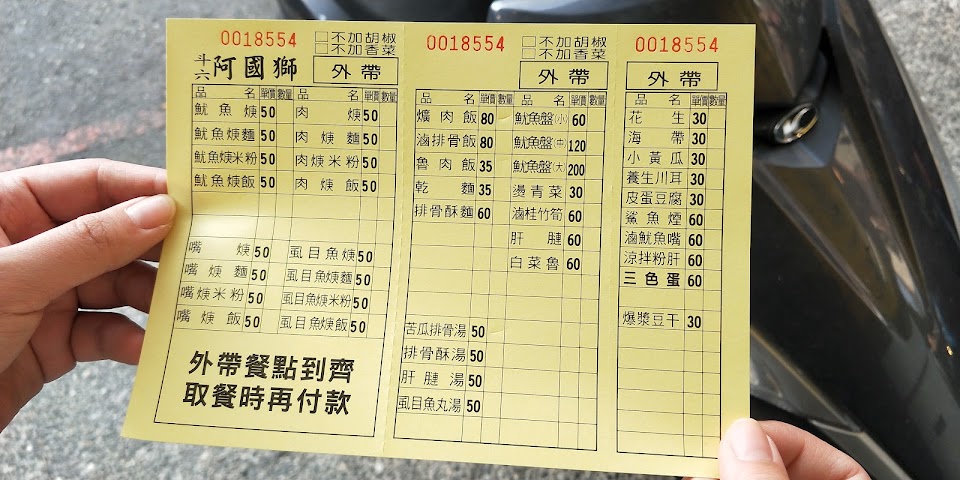 0018554
□不加胡椒
□不加香菜
斗六 阿國獅 外帶
品名 單價 數量 品名 單價 數量
魷魚焿 50 肉焿 50
魷魚焿麵 50 肉焿麵 50
魷魚焿米粉 50 肉焿米粉 50
魷魚焿飯 50 肉焿飯 50
嘴焿 50 虱目魚焿 50
嘴焿麵 50 虱目魚焿麵 50
嘴焿米粉 50 虱目魚焿米粉 50
嘴焿飯 50 虱目魚焿飯 50
外帶餐點到齊
取餐時再付款
0018554
□不加胡椒
□不加香菜
外帶
品名 單價 數量 品名 單價 數量
爌肉飯 80 魷魚盤(小) 60
滷排骨飯 80 魷魚盤(中) 120
魯肉飯 35 魷魚盤(大) 200
乾麵 35 燙青菜 30
排骨酥麵 60 滷桂竹筍 60
肝腱 60
白菜魯 60
苦瓜排骨湯 50
排骨酥湯 50
肝腱湯 50
虱目魚丸湯 50
0018554
外帶
品名 單價 數量
花生 30
海帶 30
小黃瓜 30
養生川耳 30
皮蛋豆腐 30
鯊魚煙 60
滷魷魚嘴 60
涼拌粉肝 60
三色蛋 60
爆漿豆干 30